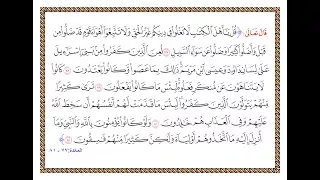 قال تعالى: ﴿ قُلْ يَا أَهْلَ الْكِتَابِ لَا تَغْلُوا فِي دِينِكُمْ غَيْرَ الْحَقِّ وَلَا تَتَّبِعُوا أَهْوَاءَ قَوْمٍ قَدْ ضَلُّوا مِن
قَبْلُ وَأَضَلُّوا كَثِيرًا وَضَلُّوا عَن سَوَاءِ السَّبِيلِ ۝ لُعِنَ الَّذِينَ كَفَرُوا مِن بَنِي إِسْرَائِيلَ
عَلَىٰ لِسَانِ دَاوُودَ وَعِيسَى ابْنِ مَرْيَمَ ذَٰلِكَ بِمَا عَصَوا وَّكَانُوا يَعْتَدُونَ ۝ كَانُوا
لَا يَتَنَاهَوْنَ عَن مُّنكَرٍ فَعَلُوهُ لَبِئْسَ مَا كَانُوا يَفْعَلُونَ ۝ تَرَىٰ كَثِيرًا
مِّنْهُمْ يَتَوَلَّوْنَ الَّذِينَ كَفَرُوا لَبِئْسَ مَا قَدَّمَتْ لَهُمْ أَنفُسُهُمْ أَن سَخِطَ اللَّهُ
عَلَيْهِمْ وَفِي الْعَذَابِ هُمْ خَالِدُونَ ۝ وَلَوْ كَانُوا يُؤْمِنُونَ بِاللَّهِ وَالنَّبِيِّ وَمَا
أُنزِلَ إِلَيْهِ مَا اتَّخَذُوهُمْ أَوْلِيَاءَ وَلَٰكِنَّ كَثِيرًا مِّنْهُمْ فَاسِقُونَ ﴾
المائدة: ٧٧ - ٨١